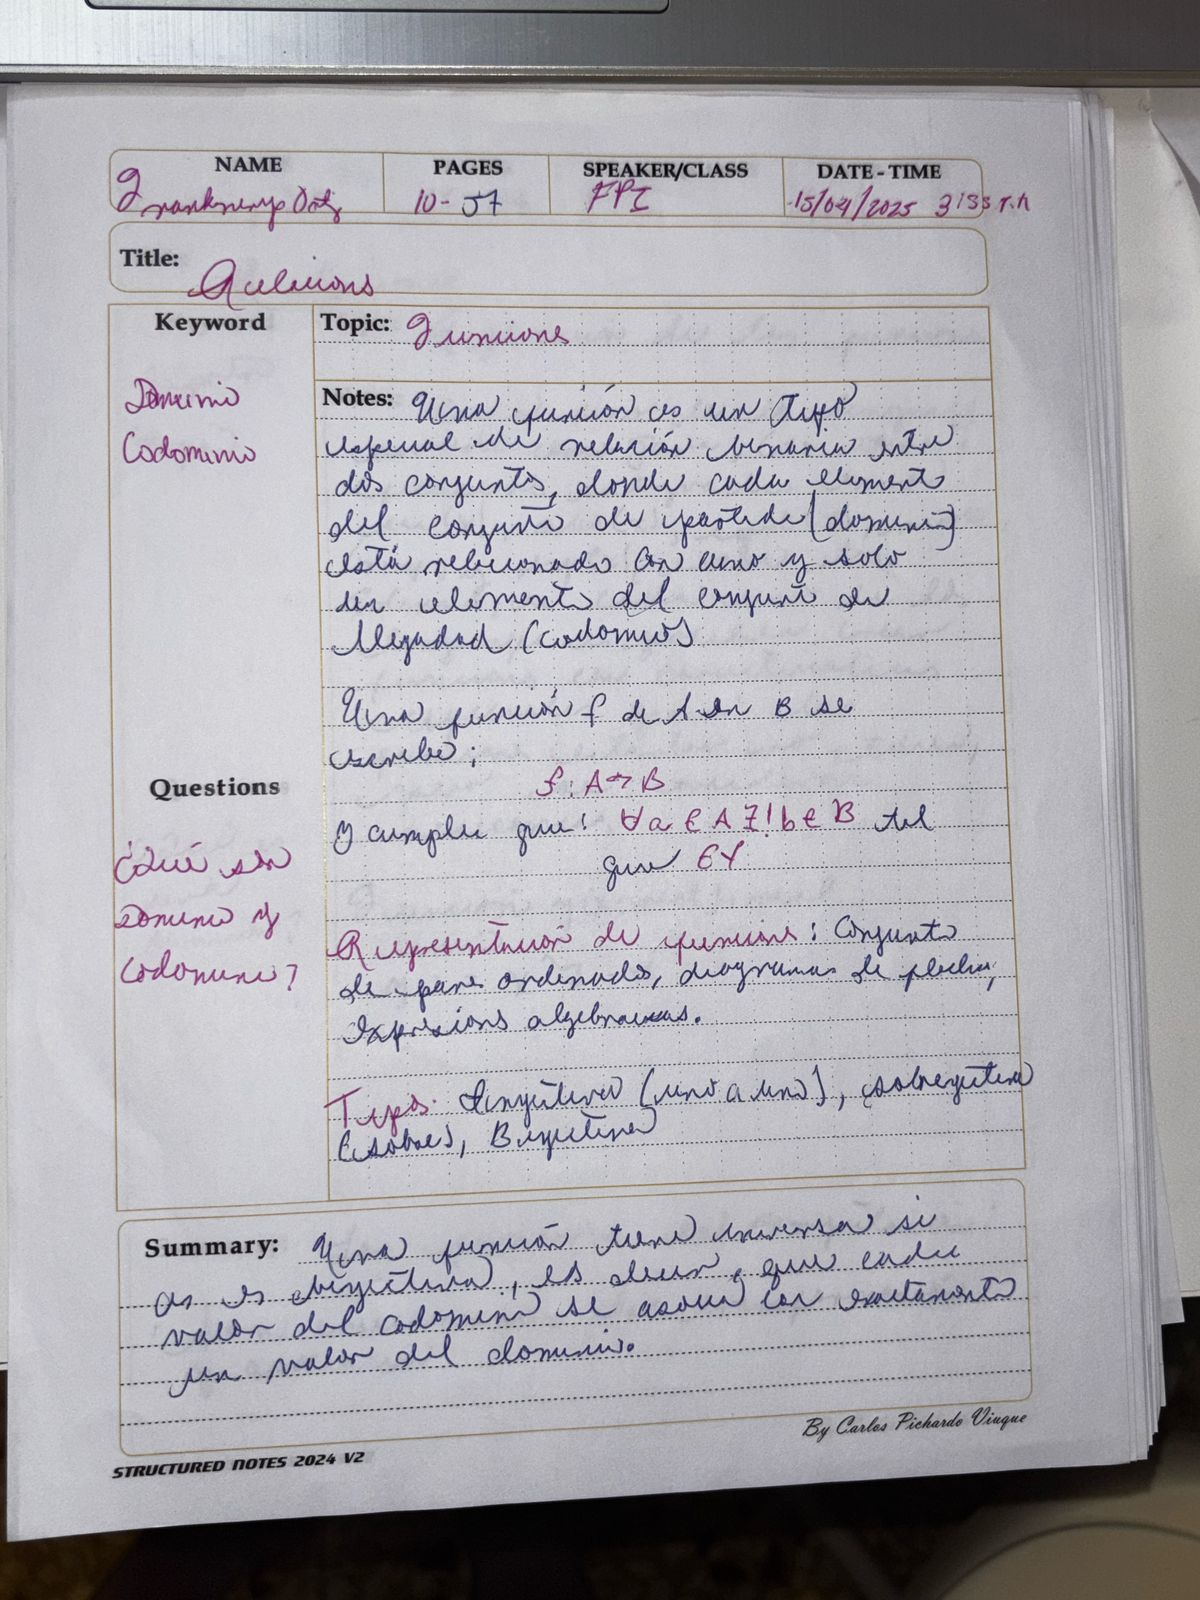 NAME PAGES SPEAKER/CLASS DATE-TIME
10-57 FPI 15/04/2025 3:33 P.M
Title: Relaciones
Keyword
Topic: Funciones
Dominio
Codominio
Notes: Una función es un tipo
especial de relación binaria entre
dos conjuntos, donde cada elemento
del conjunto de partida (dominio)
está relacionado con uno y solo
un elemento del conjunto de
llegadad (codominio)
Una función f de A en B se
escribe:
f: A→B
Y cumple que: ∀a ∈ A ∃! b ∈ B tal
que
Questions
¿Qué son
Dominio y
codominio?
Representación de funciones: Conjunto
de pares ordenados, diagramas de flecha,
Expresiones algebraicas.
Tipos: Inyectiva (uno a uno), sobreyectiva
(sobre), Biyectiva
Summary: Una función tiene inversa si
es biyectiva, es decir, que cada
valor del codominio se asocia con exactamente
un valor del dominio.
By Carlos Pichardo Viuque
STRUCTURED NOTES 2024 V2